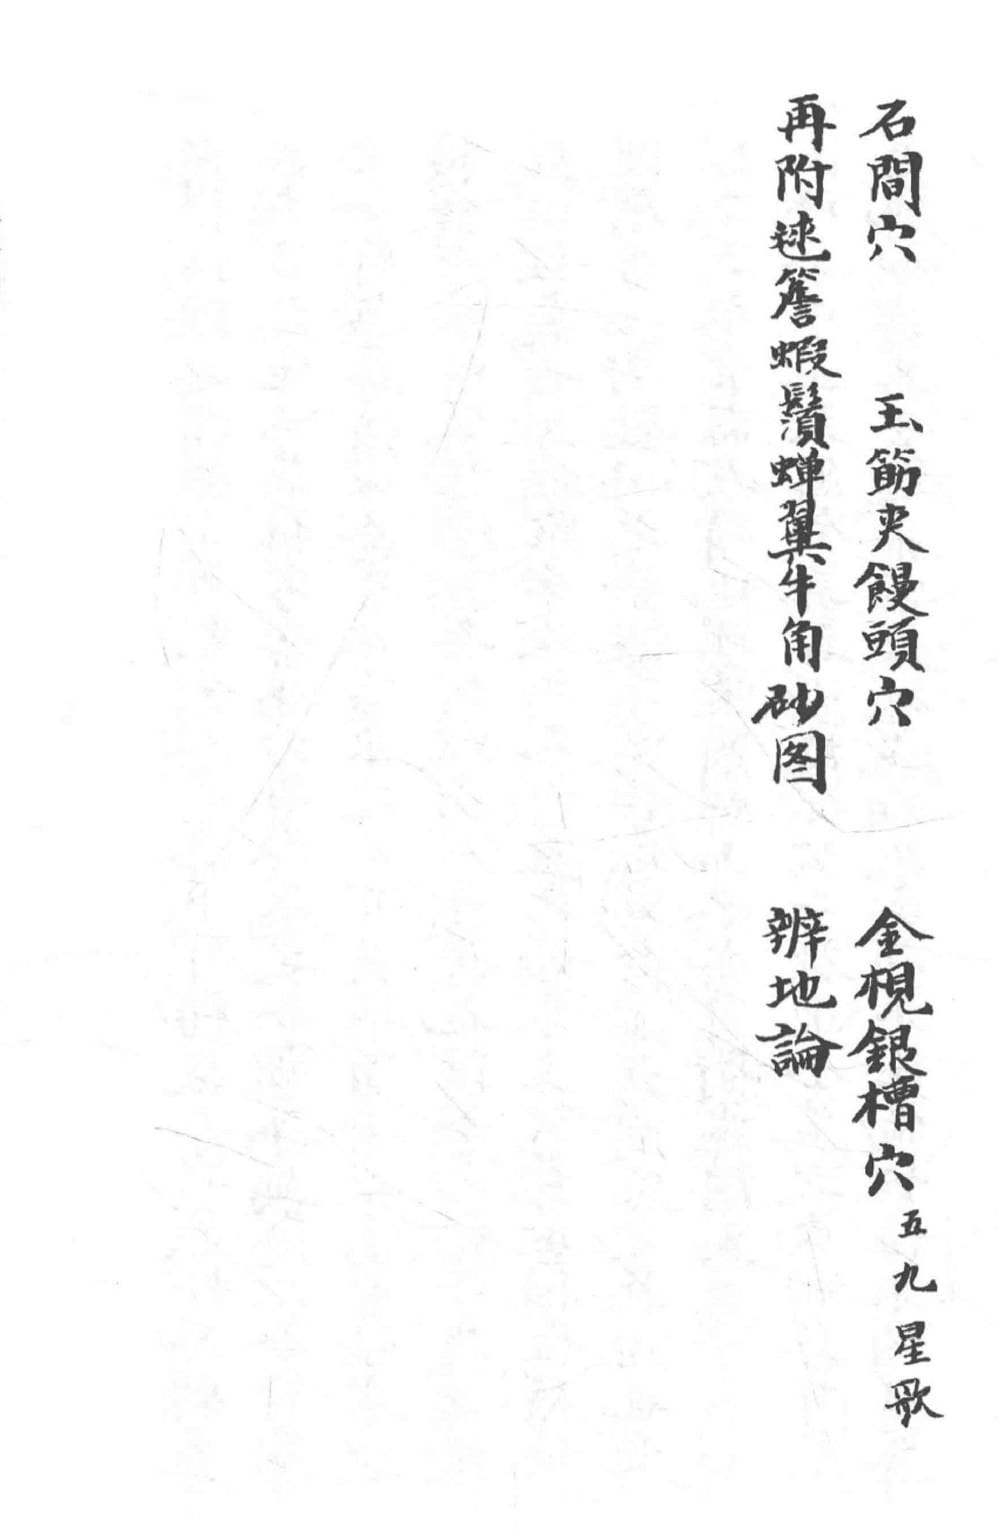 石間穴　玉筯夾饅頭穴　金梘銀槽穴　五九星歌
再附毬簷蝦鬚蟬翼牛角砂图　辨地論